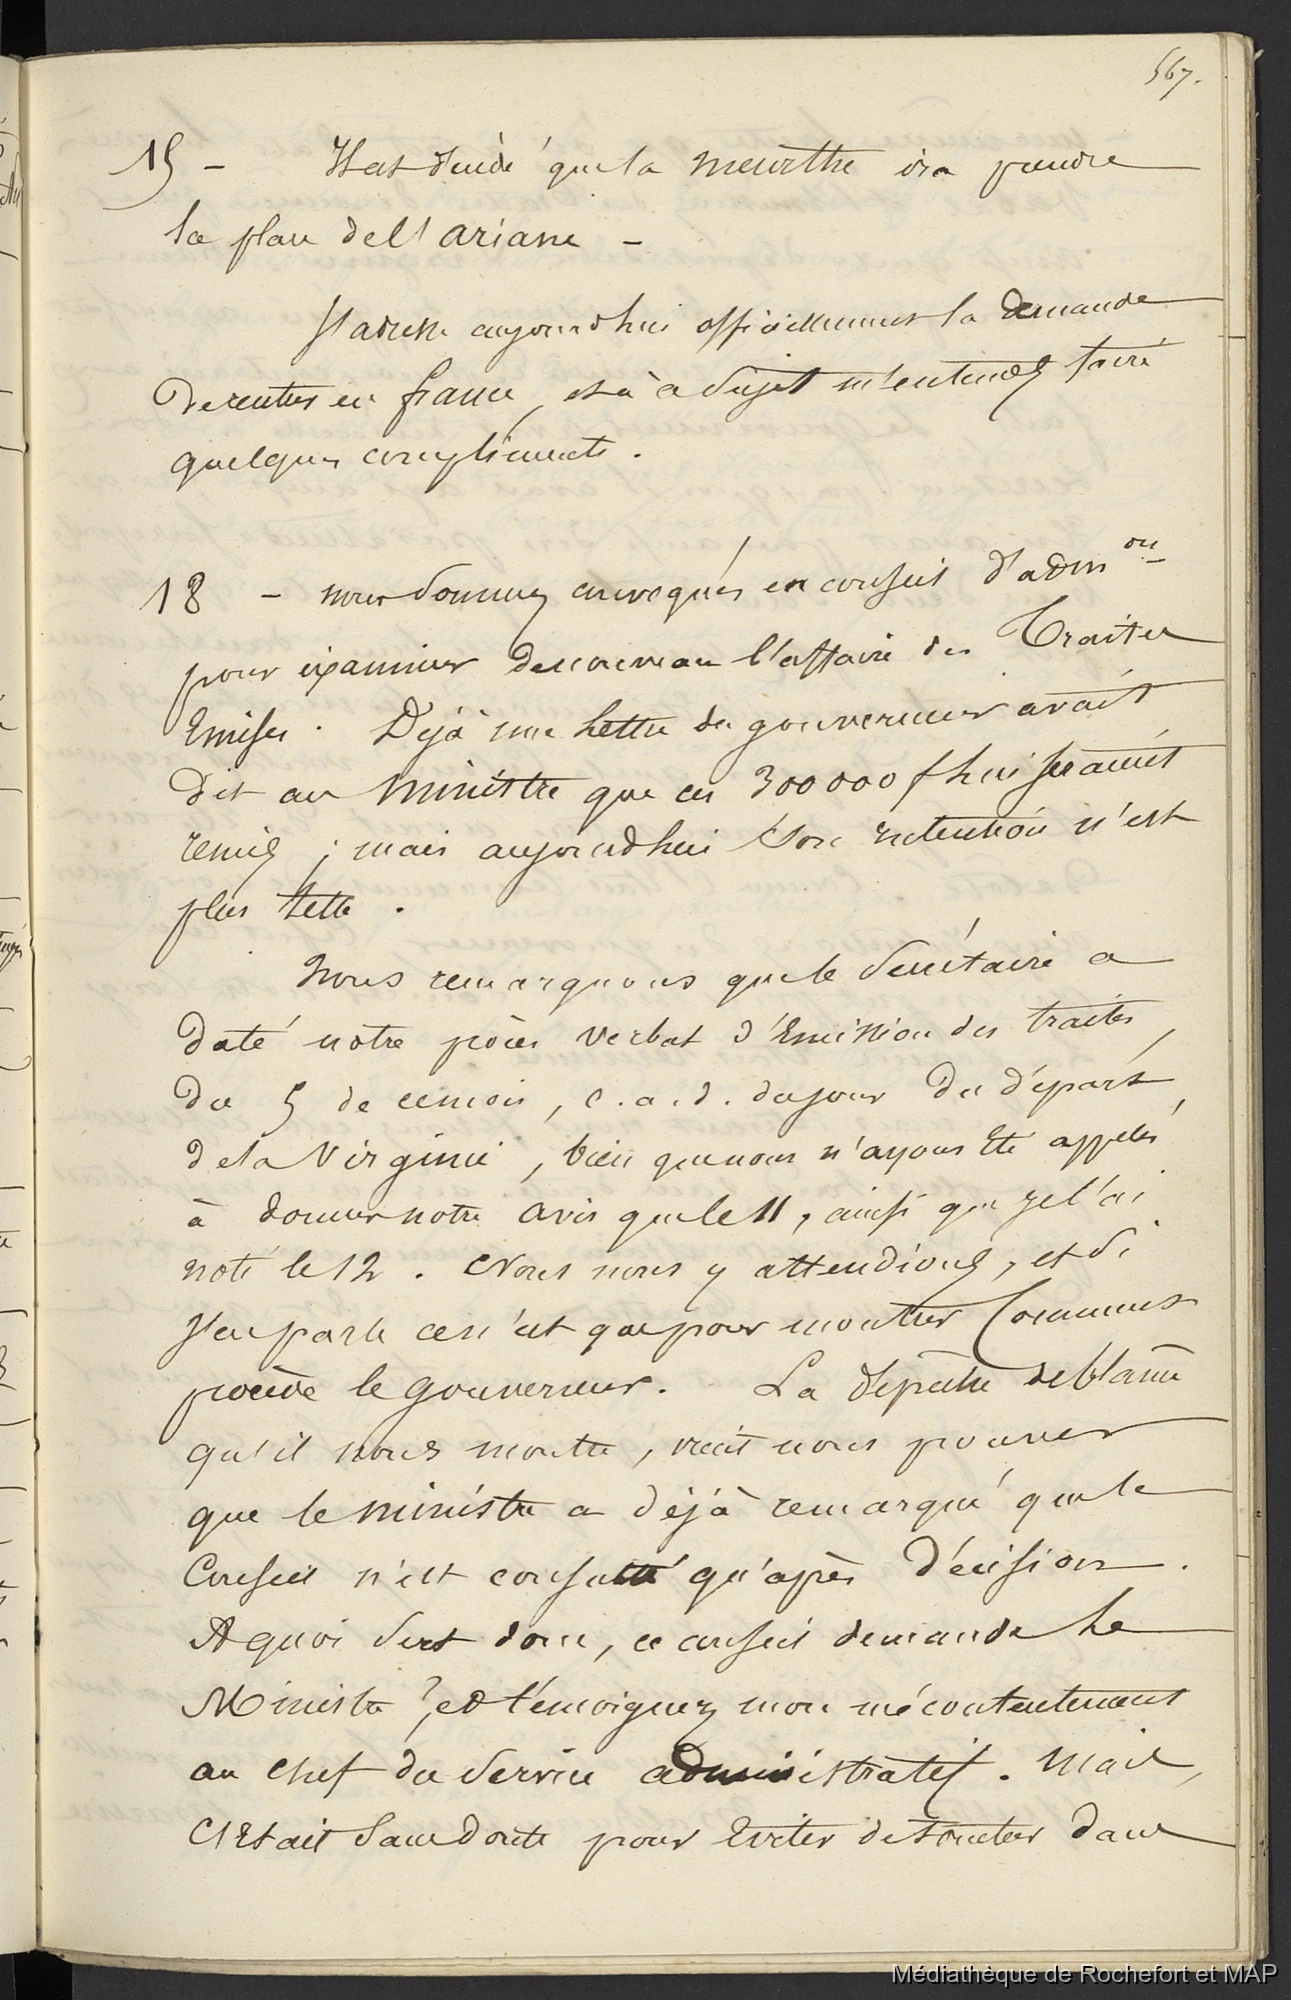 567.
15 - Il est décidé que la Meurthe ira prendre
la place de l'ariane -
J'adresse aujourdhui officiellement la demande
de rentrer en france, et à ce sujet m'entends faire
quelques compliments.
18 - nous sommes convoqués en conseil d'admon
pour examiner de nouveau l'affaire des Traites
Emises. Déjà une lettre du gouverneur avait
dit au Ministre que ces 300000 f lui seraient
remis ; mais aujourdhui son intention n'est
plus telle.
Nous remarquons que le secrétaire a
daté notre procès verbal d'Emission des traites,
du 5 de ce mois, c.a.d. du jour du départ
de la Virginie, bien que nous n'ayons été appelés
à donner notre avis que le 11, ainsi que je l'ai
noté le 12. Nous nous y attendions, et si
j'en parle ce n'est que pour montrer Comment
procède le gouverneur. La dépêche de blâme
qu'il nous montre, vient nous prouver
que le ministre a déjà remarqué que le
Conseil n'est consulté qu'après décision.
A quoi sert donc, ce conseil demande le
Ministre ?, et témoignez mon mécontentement
au chef du service administratif. Mais,
C'Etait sans doute pour Eviter de tomber dans
Médiathèque de Rochefort et MAP